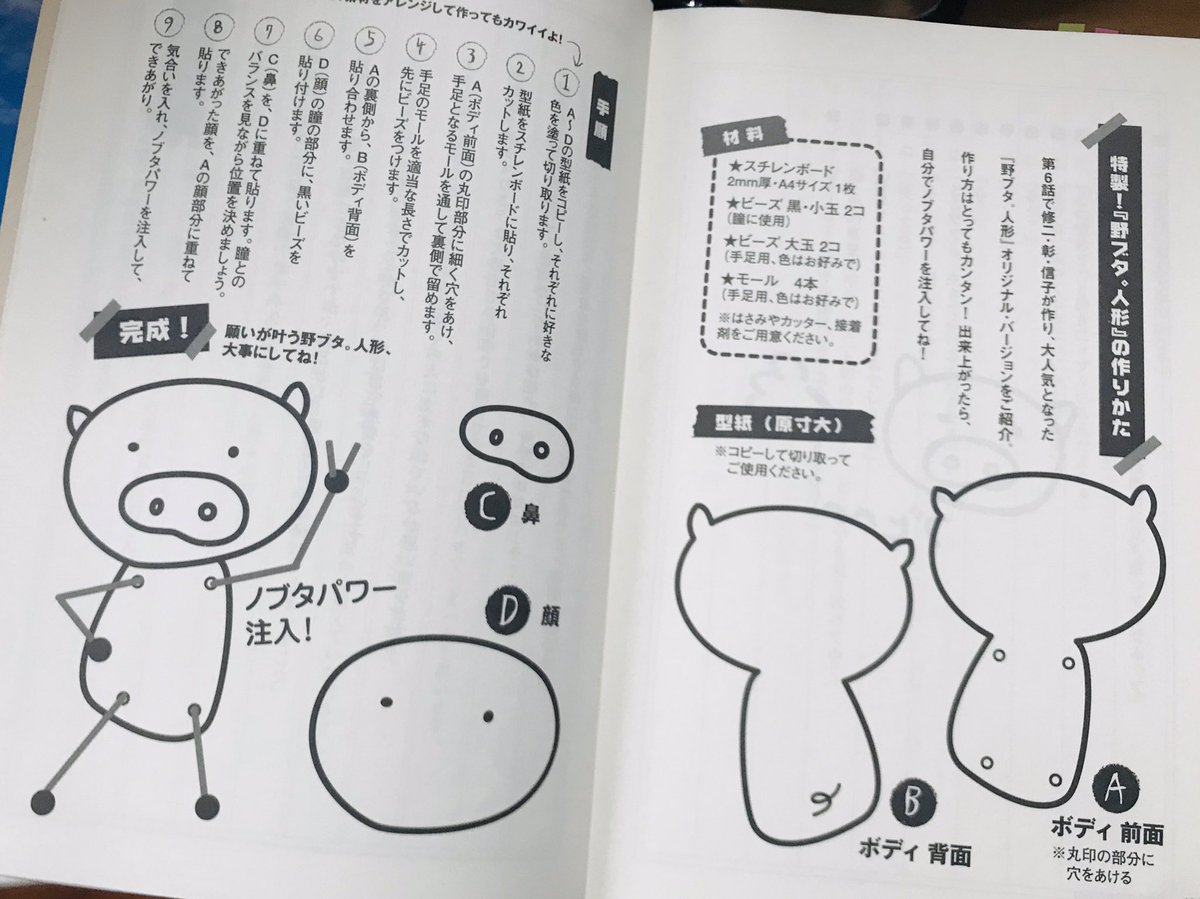 特製！『野ブタ。人形』の作りかた
第6話で修二・彰・信子が作り、大人気となった
『野ブタ。人形』オリジナル・バージョンをご紹介。
作り方はとってもカンタン！出来上がったら、
自分でノブタパワーを注入してね！
材料
★スチレンボード
2mm厚・A4サイズ 1枚
★ビーズ 黒・小玉 2コ
(瞳に使用)
★ビーズ 大玉 2コ
(手足用、色はお好みで)
★モール 4本
(手足用、色はお好みで)
※はさみやカッター、接着
剤をご用意ください。
型紙（原寸大）
※コピーして切り取って
ご使用ください。
A
ボディ 前面
※丸印の部分に
穴をあける
B
ボディ 背面
をアレンジして作ってもカワイイよ！
手順
① A〜Dの型紙をコピーし、それぞれに好きな
色を塗って切り取ります。
② 型紙をスチレンボードに貼り、それぞれ
カットします。
③ A(ボディ前面)の丸印部分に細く穴をあけ、
手足となるモールを通して裏側で留めます。
④ 手足のモールを適当な長さでカットし、
先にビーズをつけます。
⑤ Aの裏側から、B(ボディ背面)を
貼り合わせます。
⑥ D(顔)の瞳の部分に、黒いビーズを
貼り付けます。
⑦ C(鼻)を、Dに重ねて貼ります。瞳との
バランスを見ながら位置を決めましょう。
⑧ できあがった顔を、Aの顔部分に重ねて
貼ります。
⑨ 気合いを入れ、ノブタパワーを注入して、
できあがり。
完成！
願いが叶う野ブタ。人形、
大事にしてね！
ノブタパワー
注入！
C 鼻
D 顔